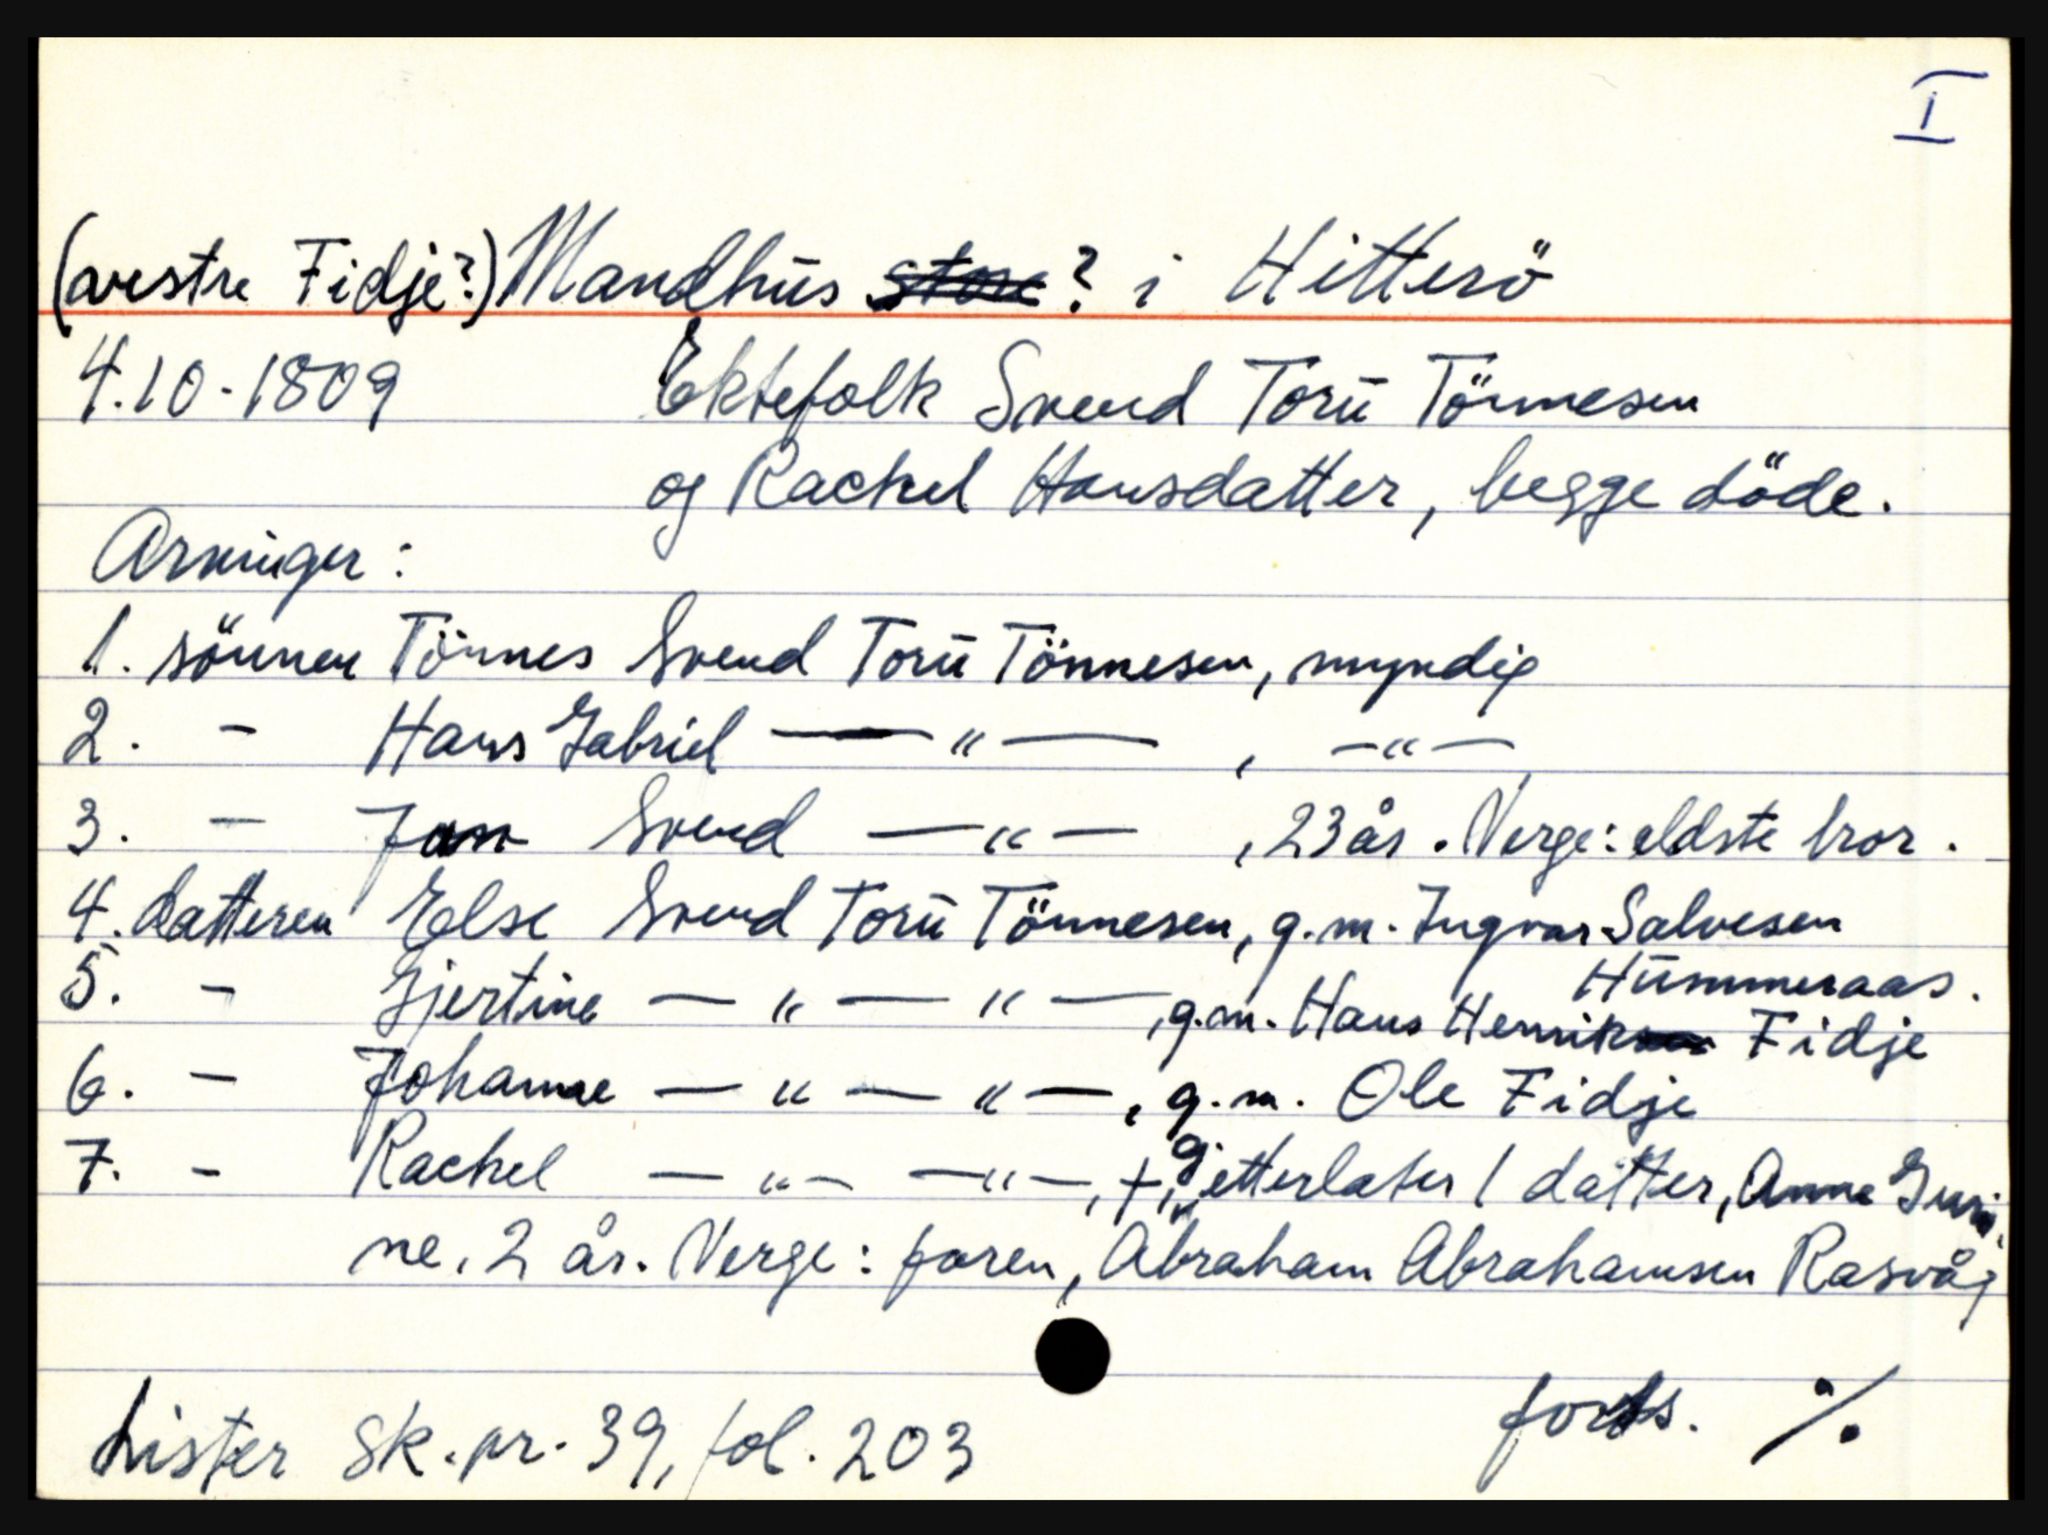 I
(vestre Fidje?) Mandhūs store? i Hitterö
4.10-1809 Ektefolk Svend Torū Tönnesen
og Rachel Hansdatter, begge döde.
Arvinger:
1. sönnen Tönnes Svend Torū Tönnesen, myndig
2. - Hans Gabriel —— " —— , — " —
3. - Jan Svend —— " — , 23 år. Verge: eldste bror.
4. datteren Else Svend Torū Tönnesen, g.m. Ingvar Salvesen
Hūmmeraas.
5. - Gjertine — " — " — , g.m. Hans Henrik Fidje
6. - Johanne — " — " — , g.m. Ole Fidje
7. - Rachel — " — — " — , +, etterlater 1 datter, Anne Guri-
ne, 2 år. Verge: faren, Abraham Abrahamsen Rasvåg
forts. ./.
Lister sk.pr. 39, fol. 203